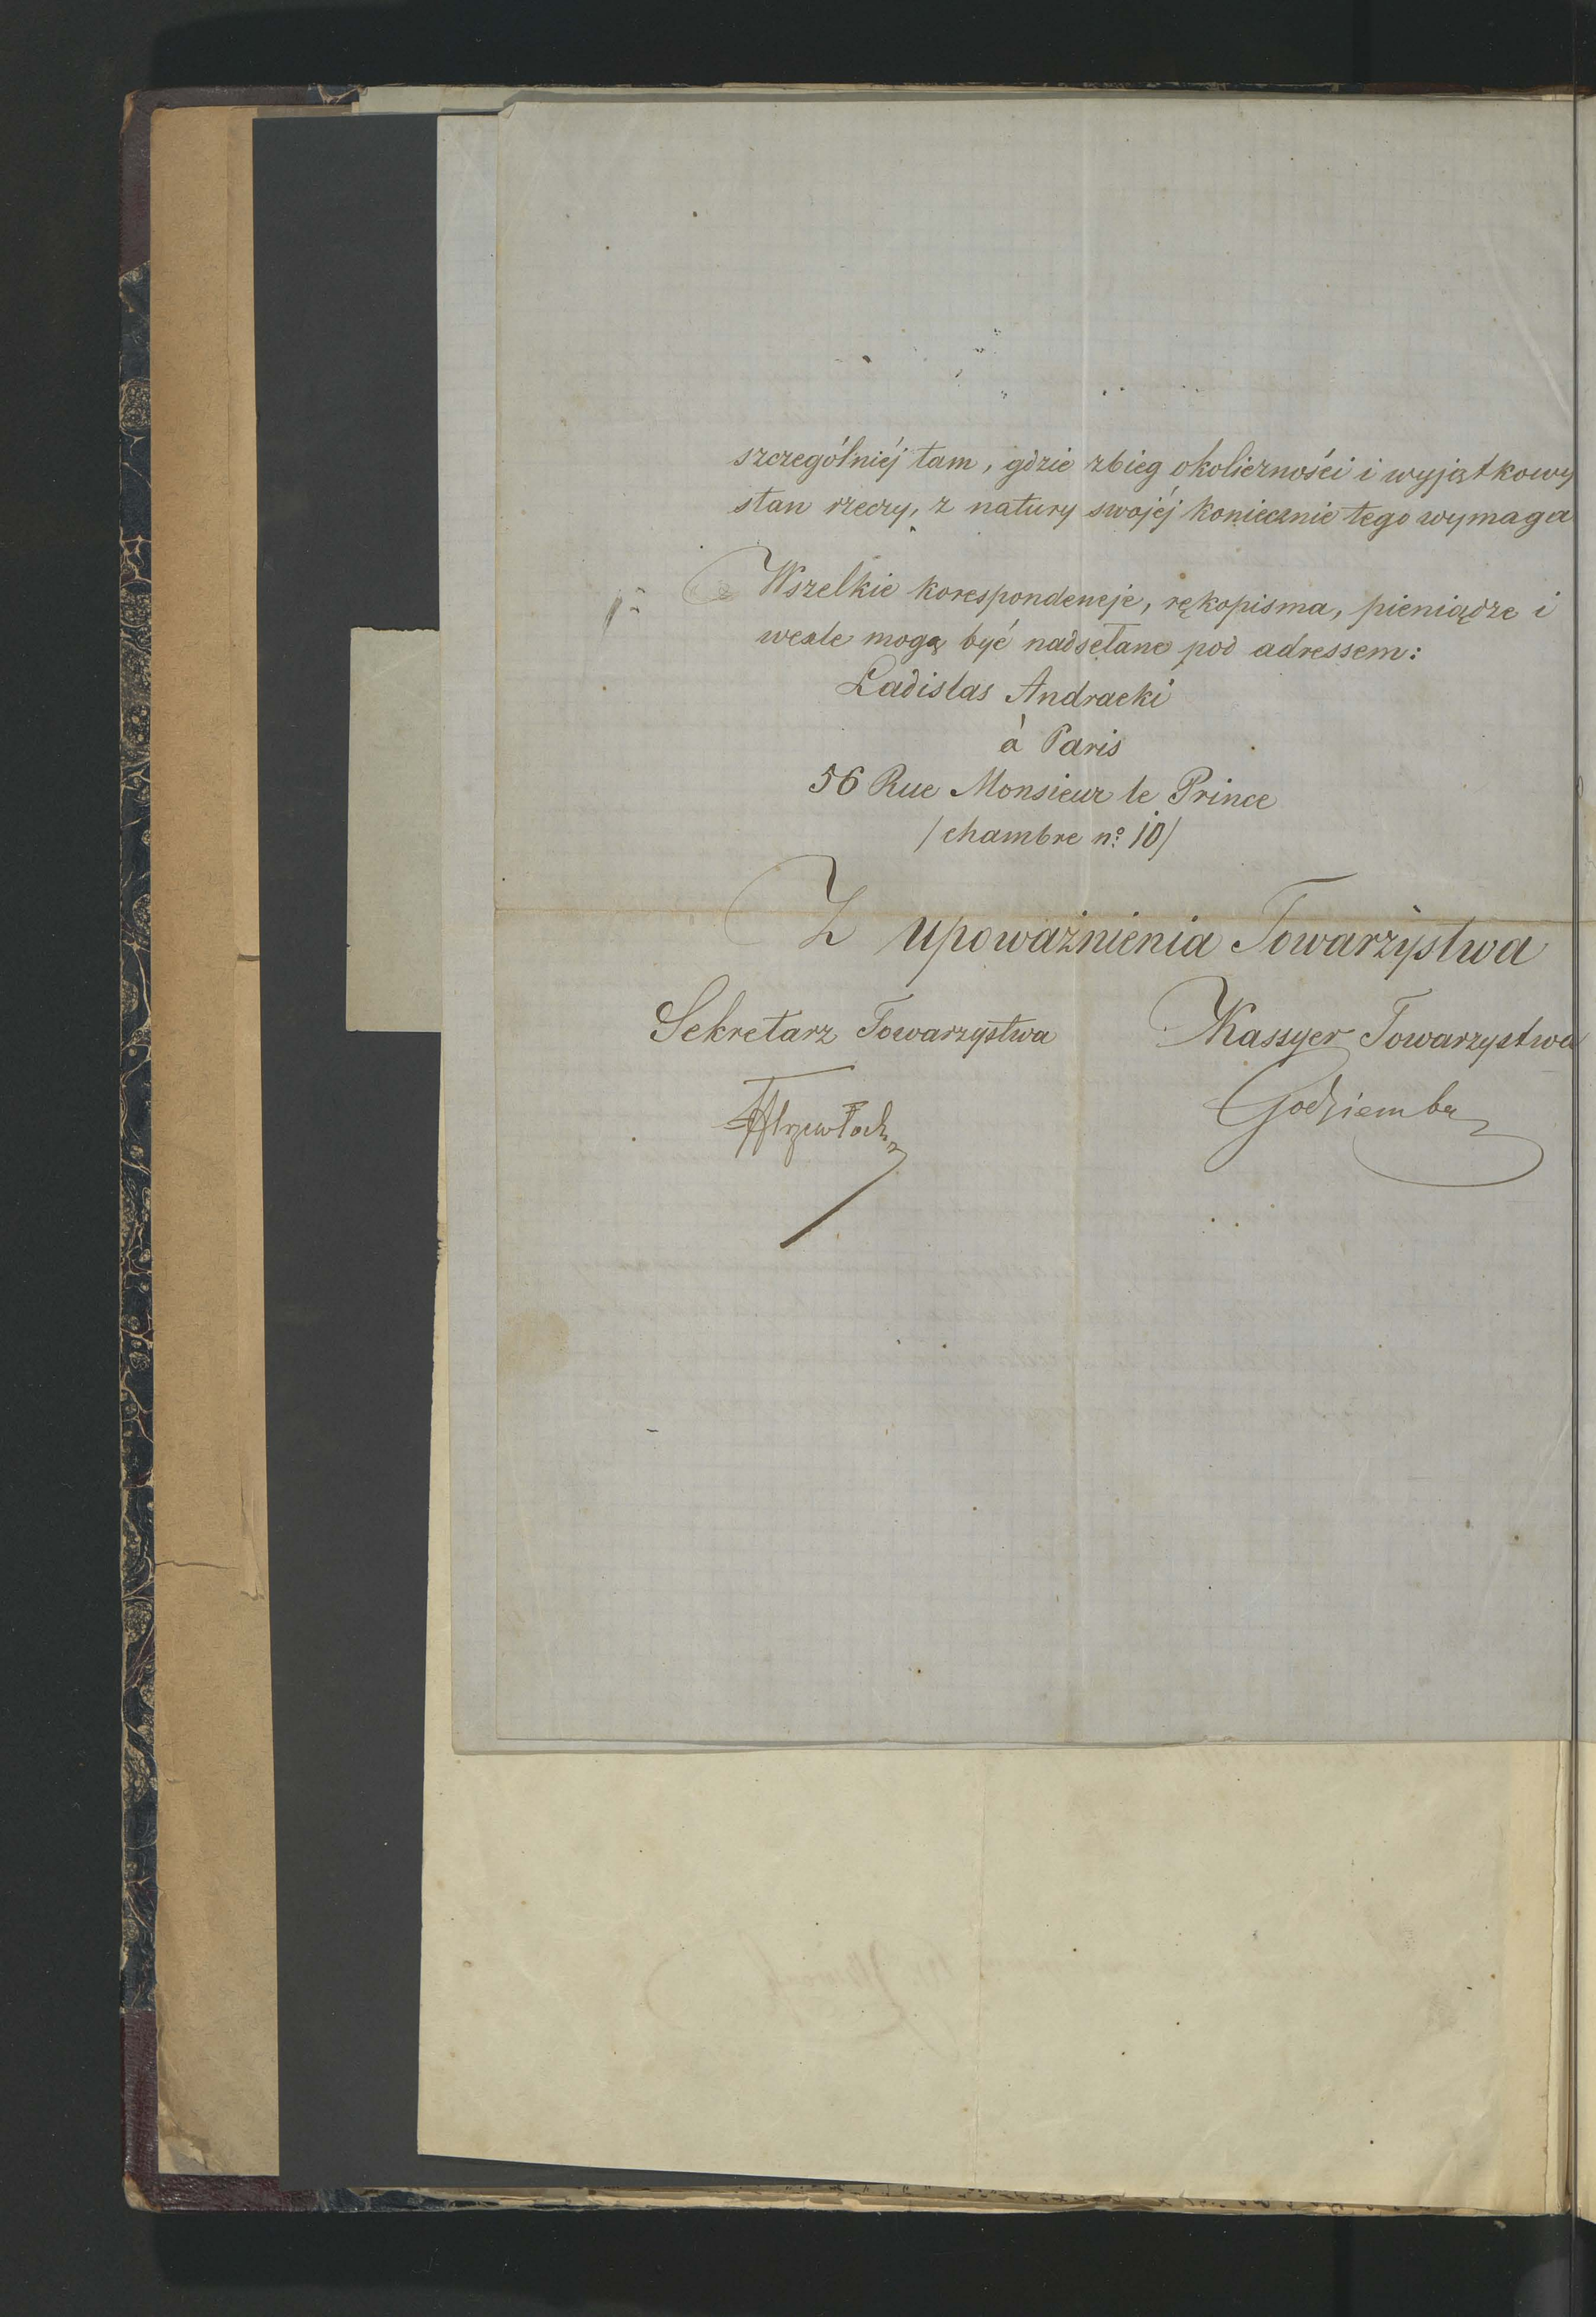 szczególniéj tam, gdzie zbieg okoliczności i wyjątkowy
stan rzeczy, z natury swojéj koniecznie tego wymaga
Wszelkie korespondencje, rękopisma, pieniądze i
wexle mogą być nadsełane pod adressem:
Ladislas Andracki
à Paris
56 Rue Monsieur le Prince
/chambre nº 10/
Z upoważnienia Towarzystwa
Sekretarz Towarzystwa Kassyer Towarzystwa
Godziemba